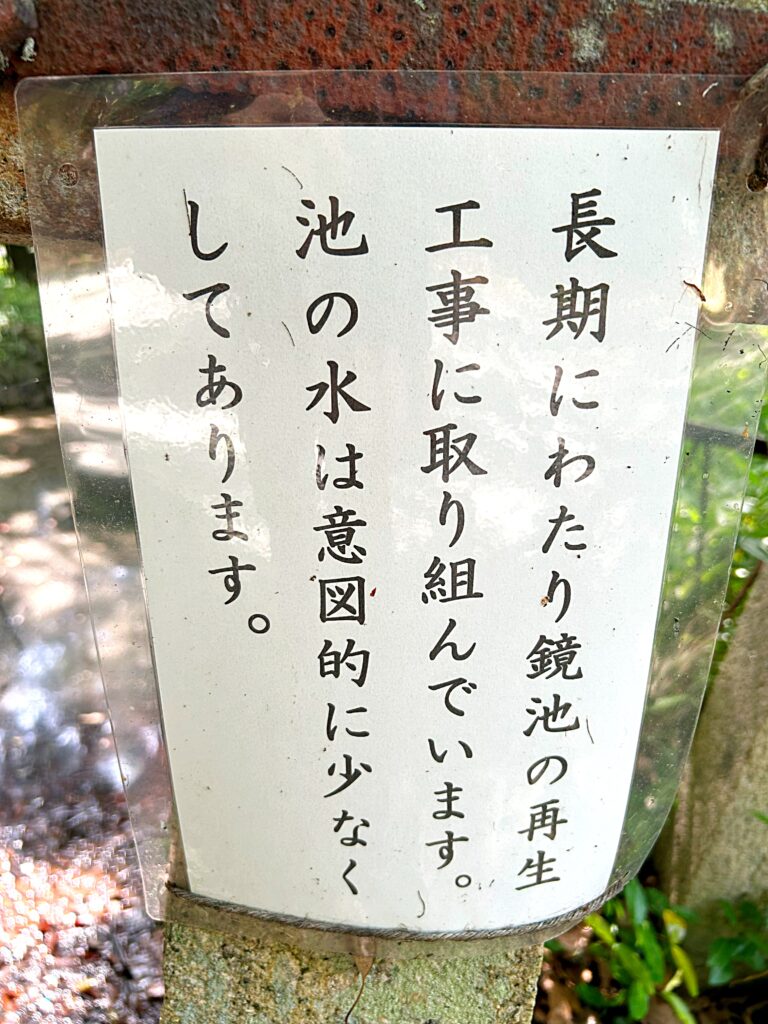 長期にわたり鏡池の再生
工事に取り組んでいます。
池の水は意図的に少なく
してあります。